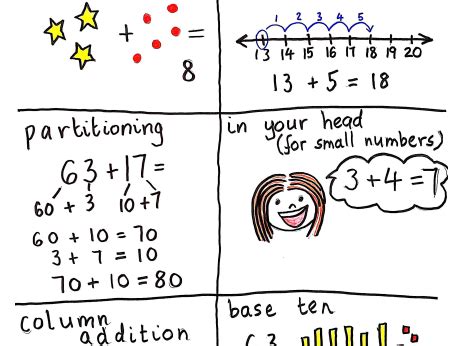 + =
8
1 2 3 4 5
13 14 15 16 17 18 19 20
13 + 5 = 18
partitioning
63 + 17 =
60 + 3 10 + 7
60 + 10 = 70
3 + 7 = 10
70 + 10 = 80
in your head
(for small numbers)
3 + 4 = 7
column
addition
base ten
63